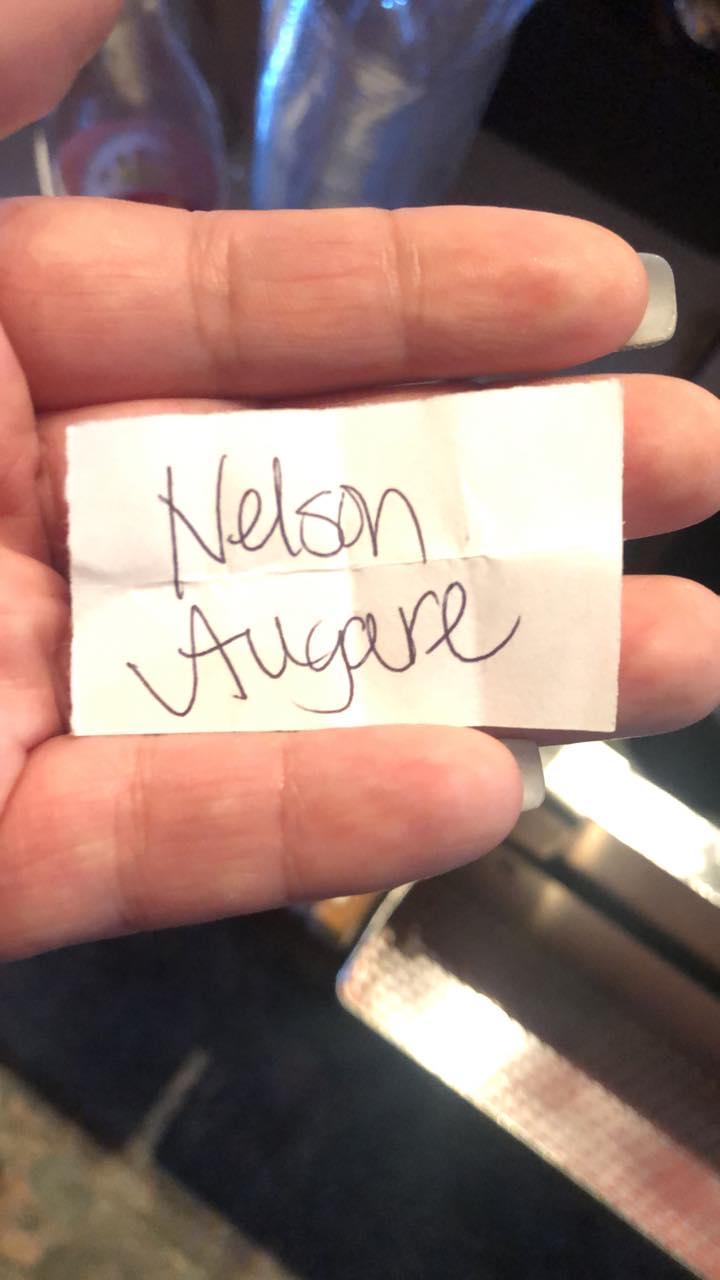 Nelson
Augare